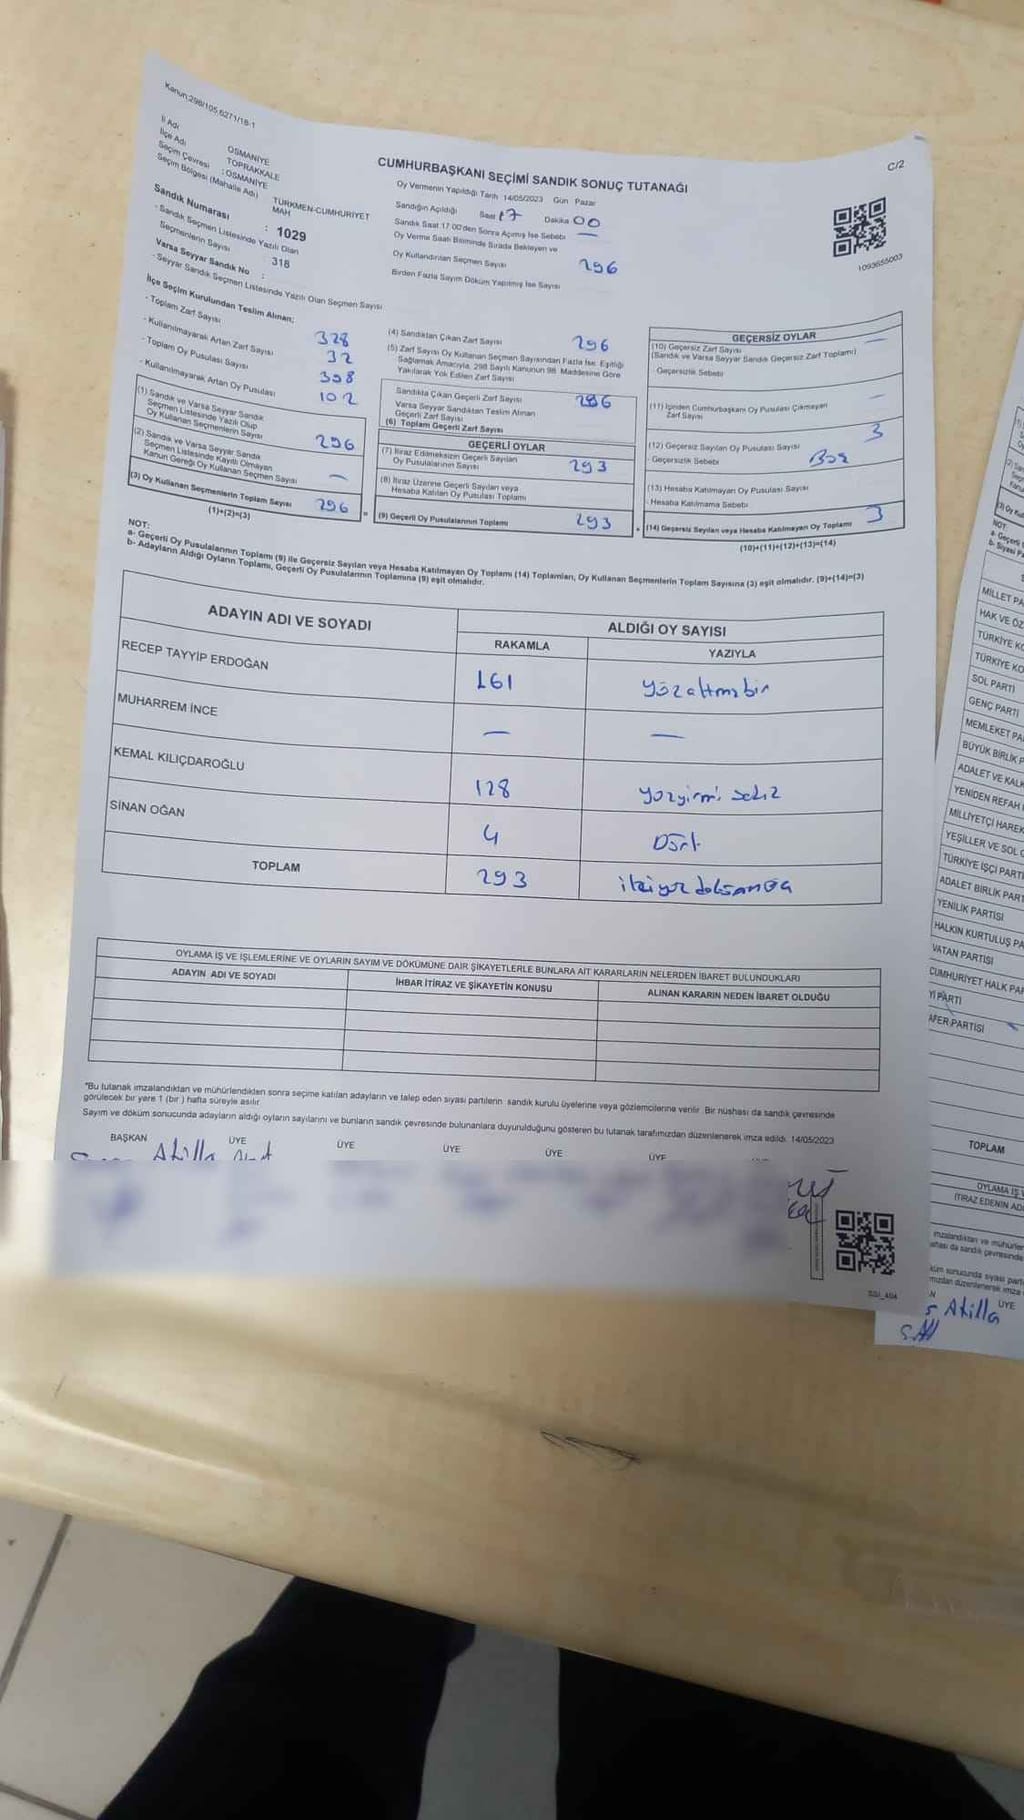 Kanun:298/105,6271/18-1
C/2
İl Adı : OSMANİYE
İlçe Adı : TOPRAKKALE
Seçim Çevresi : OSMANİYE
Seçim Bölgesi (Mahalle Adı) TÜRKMEN-CUMHURİYET MAH
Sandık Numarası : 1029
- Sandık Seçmen Listesinde Yazılı Olan
Seçmenlerin Sayısı : 318
Varsa Seyyar Sandık No :
- Seyyar Sandık Seçmen Listesinde Yazılı Olan Seçmen Sayısı
CUMHURBAŞKANI SEÇİMİ SANDIK SONUÇ TUTANAĞI
Oy Vermenin Yapıldığı Tarih 14/05/2023 Gün Pazar
Sandığın Açıldığı Saat 17 Dakika 00
Sandık Saat 17.00'den Sonra Açılmış İse Sebebi —
Oy Verme Saati Bitiminde Sırada Bekleyen ve
Oy Kullandırılan Seçmen Sayısı 296
Birden Fazla Sayım Döküm Yapılmış İse Sayısı
1093655003
İlçe Seçim Kurulundan Teslim Alınan;
- Toplam Zarf Sayısı 328
- Kullanılmayarak Artan Zarf Sayısı 32
- Toplam Oy Pusulası Sayısı 398
- Kullanılmayarak Artan Oy Pusulası 102
(1) Sandık ve Varsa Seyyar Sandık
Seçmen Listesinde Yazılı Olup
Oy Kullanan Seçmenlerin Sayısı 296
(2) Sandık ve Varsa Seyyar Sandık
Seçmen Listesinde Kayıtlı Olmayan
Kanun Gereği Oy Kullanan Seçmen Sayısı —
(3) Oy Kullanan Seçmenlerin Toplam Sayısı 296
(1)+(2)=(3)
(4) Sandıktan Çıkan Zarf Sayısı 296
(5) Zarf Sayısı Oy Kullanan Seçmen Sayısından Fazla İse, Eşitliği
Sağlamak Amacıyla, 298 Sayılı Kanunun 98. Maddesine Göre
Yakılarak Yok Edilen Zarf Sayısı
Sandıkta Çıkan Geçerli Zarf Sayısı 296
Varsa Seyyar Sandıktan Teslim Alınan
Geçerli Zarf Sayısı
(6) Toplam Geçerli Zarf Sayısı
GEÇERLİ OYLAR
(7) İtiraz Edilmeksizin Geçerli Sayılan
Oy Pusulalarının Sayısı 293
(8) İtiraz Üzerine Geçerli Sayılan veya
Hesaba Katılan Oy Pusulası Toplamı
(9) Geçerli Oy Pusulalarının Toplamı 293
GEÇERSİZ OYLAR
(10) Geçersiz Zarf Sayısı —
(Sandık ve Varsa Seyyar Sandık Geçersiz Zarf Toplamı)
Geçersizlik Sebebi
(11) İçinden Cumhurbaşkanı Oy Pusulası Çıkmayan
Zarf Sayısı —
(12) Geçersiz Sayılan Oy Pusulası Sayısı 3
Geçersizlik Sebebi Boş
(13) Hesaba Katılmayan Oy Pusulası Sayısı
Hesaba Katılmama Sebebi
(14) Geçersiz Sayılan veya Hesaba Katılmayan Oy Toplamı 3
(10)+(11)+(12)+(13)=(14)
NOT:
a- Geçerli Oy Pusulalarının Toplamı (9) ile Geçersiz Sayılan veya Hesaba Katılmayan Oy Toplamı (14) Toplamları, Oy Kullanan Seçmenlerin Toplam Sayısına (3) eşit olmalıdır. (9)+(14)=(3)
b- Adayların Aldığı Oyların Toplamı, Geçerli Oy Pusulalarının Toplamına (9) eşit olmalıdır.
ADAYIN ADI VE SOYADI ALDIĞI OY SAYISI
RAKAMLA YAZIYLA
RECEP TAYYİP ERDOĞAN 161 yüzaltmışbir
MUHARREM İNCE — —
KEMAL KILIÇDAROĞLU 128 yüzyirmi sekiz
SİNAN OĞAN 4 Dört
TOPLAM 293 ikiyüz doksanüç
OYLAMA İŞ VE İŞLEMLERİNE VE OYLARIN SAYIM VE DÖKÜMÜNE DAİR ŞİKAYETLERLE BUNLARA AİT KARARLARIN NELERDEN İBARET BULUNDUKLARI
ADAYIN ADI VE SOYADI İHBAR İTİRAZ VE ŞİKAYETİN KONUSU ALINAN KARARIN NEDEN İBARET OLDUĞU
*Bu tutanak imzalandıktan ve mühürlendikten sonra seçime katılan adayların ve talep eden siyasi partilerin sandık kurulu üyelerine veya gözlemcilerine verilir. Bir nüshası da sandık çevresinde
görülecek bir yere 1 (bir) hafta süreyle asılır.
Sayım ve döküm sonucunda adayların aldığı oyların sayılarını ve bunların sandık çevresinde bulunanlara duyurulduğunu gösteren bu tutanak tarafımızdan düzenlenerek imza edildi. 14/05/2023
BAŞKAN ÜYE ÜYE ÜYE ÜYE ÜYE
Atilla
MİLLET PA
HAK VE ÖZ
TÜRKİYE KO
TÜRKİYE KO
SOL PARTİ
GENÇ PARTİ
MEMLEKET PA
BÜYÜK BİRLİK P
ADALET VE KALK
YENİDEN REFAH
MİLLİYETÇİ HAREK
YEŞİLLER VE SOL
TÜRKİYE İŞÇİ PARTİ
ADALET BİRLİK PART
YENİLİK PARTİSİ
HALKIN KURTULUŞ PA
VATAN PARTİSİ
CUMHURİYET HALK PAR
Yİ PARTİ
AFER PARTİSİ
TOPLAM
OYLAMA İŞ
İTİRAZ EDENİN ADI
ÜYE
Atilla